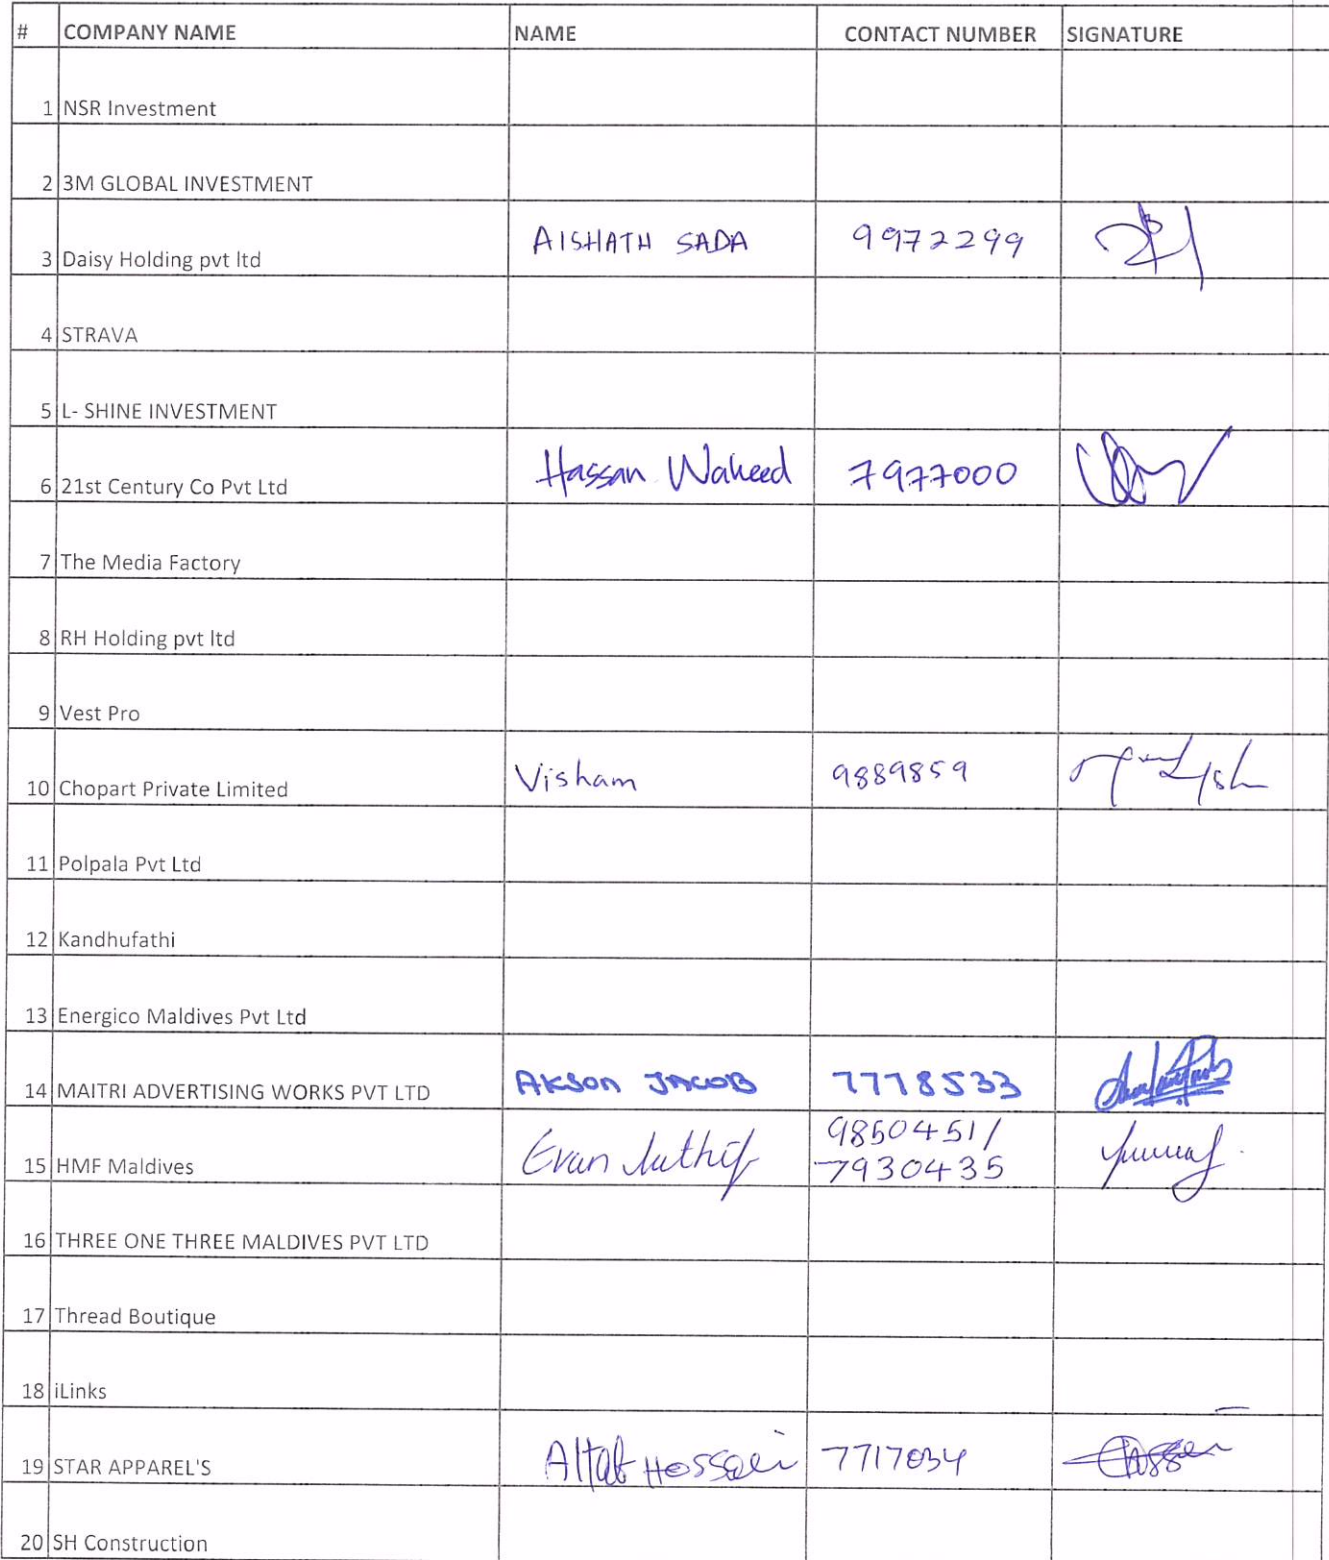 # COMPANY NAME NAME CONTACT NUMBER SIGNATURE
1 NSR Investment
2 3M GLOBAL INVESTMENT
3 Daisy Holding pvt ltd AISHATH SADA 9972299
4 STRAVA
5 L- SHINE INVESTMENT
6 21st Century Co Pvt Ltd Hassan Waheed 7977000
7 The Media Factory
8 RH Holding pvt ltd
9 Vest Pro
10 Chopart Private Limited Visham 9889859
11 Polpala Pvt Ltd
12 Kandhufathi
13 Energico Maldives Pvt Ltd
14 MAITRI ADVERTISING WORKS PVT LTD AKSON JACOB 7778533
15 HMF Maldives Evan Luthif 9850451/
7930435
16 THREE ONE THREE MALDIVES PVT LTD
17 Thread Boutique
18 iLinks
19 STAR APPAREL'S Altab 7717034
20 SH Construction